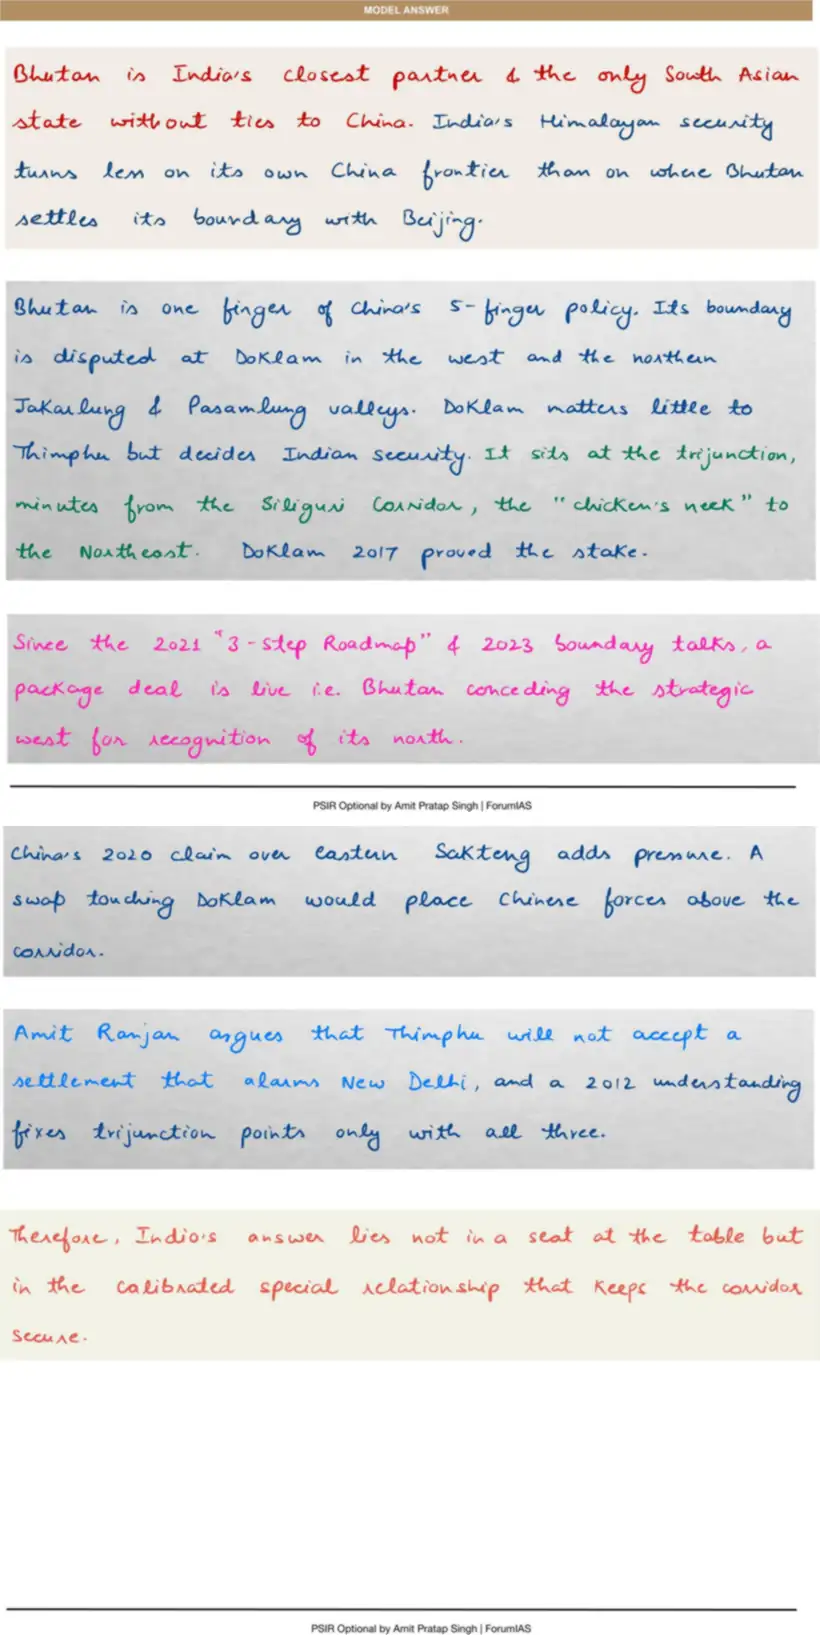 MODEL ANSWER
Bhutan is India's closest partner & the only South Asian
state without ties to China. India's Himalayan security
turns less on its own China frontier than on where Bhutan
settles its boundary with Beijing.
Bhutan is one finger of China's 5-finger policy. Its boundary
is disputed at Doklam in the west and the northern
Jakarlung & Pasamlung valleys. Doklam matters little to
Thimphu but decides Indian security. It sits at the trijunction,
minutes from the Siliguri Corridor, the "chicken's neck" to
the Northeast. Doklam 2017 proved the stake.
Since the 2021 "3-Step Roadmap" & 2023 boundary talks, a
package deal is live i.e. Bhutan conceding the strategic
west for recognition of its north.
PSIR Optional by Amit Pratap Singh | ForumIAS
China's 2020 claim over eastern Sakteng adds pressure. A
swap touching Doklam would place Chinese forces above the
corridor.
Amit Ranjan argues that Thimphu will not accept a
settlement that alarms New Delhi, and a 2012 understanding
fixes trijunction points only with all three.
Therefore, India's answer lies not in a seat at the table but
in the calibrated special relationship that keeps the corridor
secure.
PSIR Optional by Amit Pratap Singh | ForumIAS